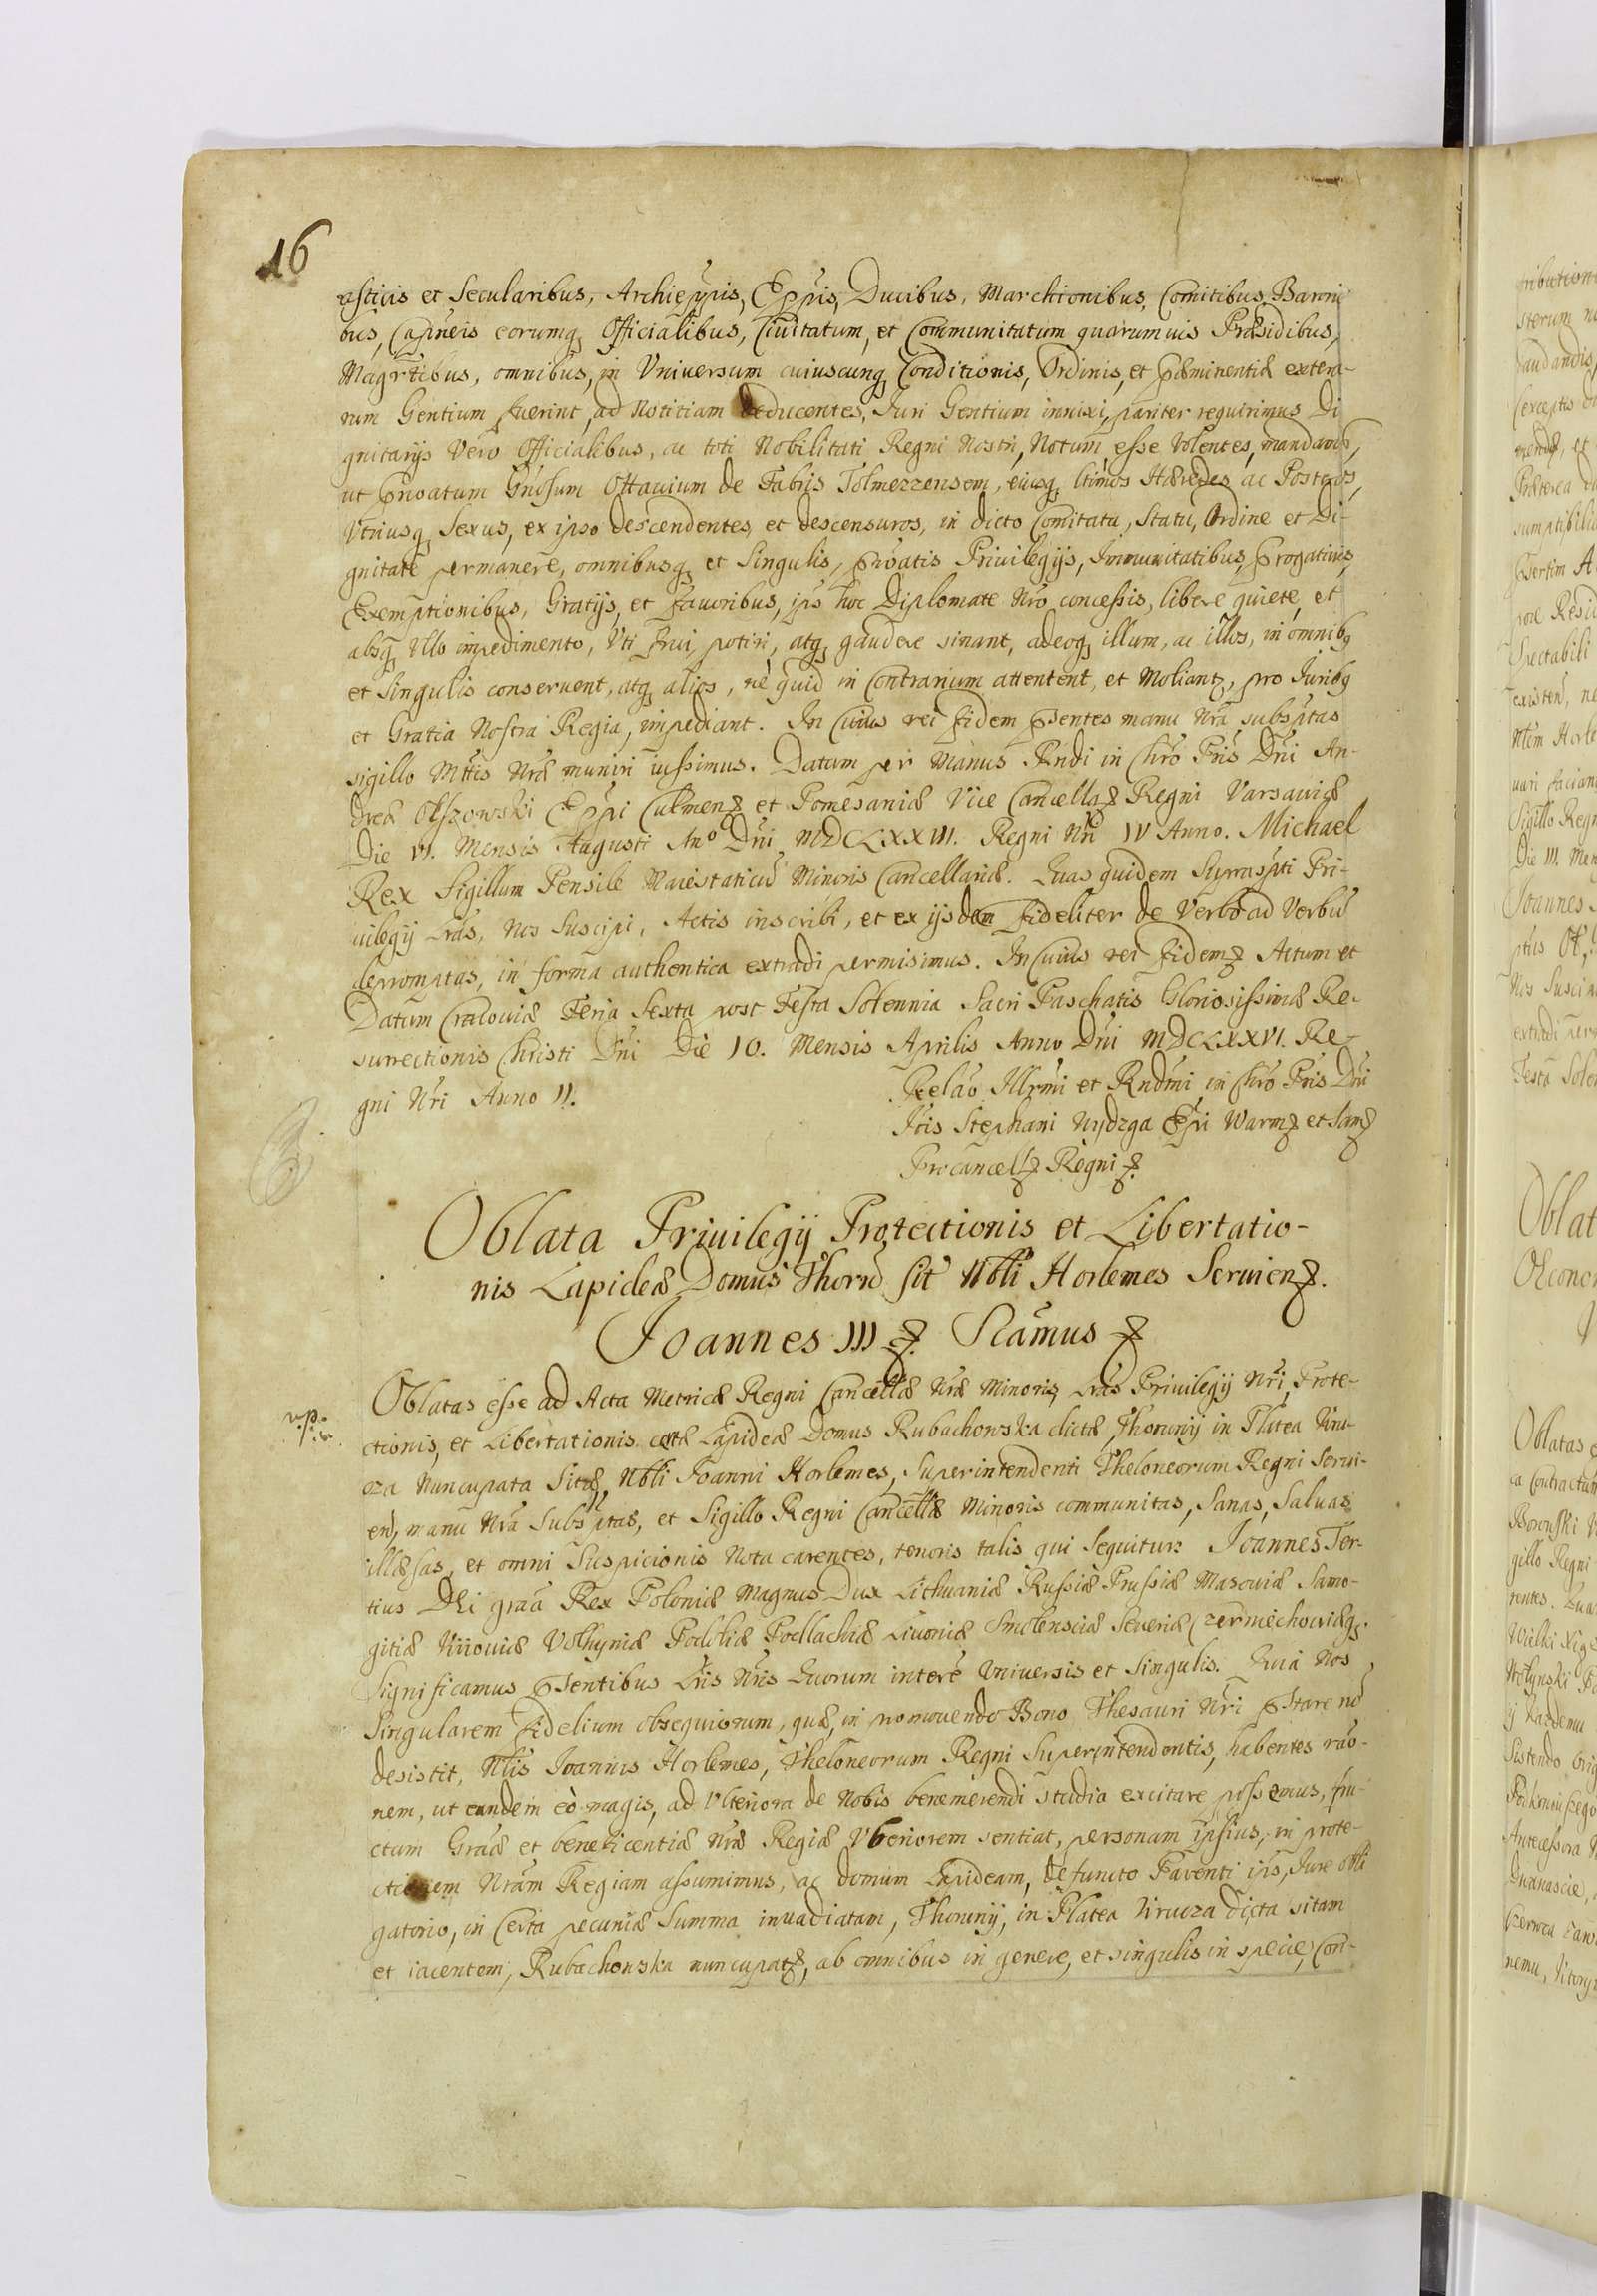 16
asticis et Secularibus, Archieppis, Eppis, Ducibus, Marchionibus, Comitibus, Baroni
bus, Capneis eorumq, Officialibus, Civitatum, et Communitatum quarumvis Præsidibus,
Magrtibus, omnibus, in Universum cuiuscunq Conditionis, Ordinis, et Præminentiæ extera-
rum Gentium fuerint, ad Notitiam deducentes, Juri Gentium innixi, pariter requirimus Di
gnitarijs Vero Officialibus, ac toti Nobilitati Regni Nostri, Notum esse Volentes, mandamus,
ut Gnosum Ottavium de Fabris Tolmezzensem, eiusq, ltimos Hæredes ac Posteros,
Utriusq, Sexus, ex ipso descendentes, et descensuros, in dicto Comitatu, Statu, Ordine et Di-
gnitate permanere, omnibusq, et Singulis, Privilegijs, Immunitatibus, Prrogativis,
Exemptionibus, Gratijs, et favoribus, ips hoc Diplomate Nro concessis, libere quiete, et
absq, Ullo impedimento, Uti frui, potiri, atq, gaudere sinant, adeoq, illum, ac illos, in omnibq
et Singulis conservent, atq, alios, ne quid in Contrarium attentent, et Moliantr, pro Juribq
et Gratia Nostra Regia, impediant. In Cuius rei fidem psentes manu Nra subsptas
sigillo Mttis Nræ muniri iussimus. Datum per Manus Rndi in Chro Pris Dni An-
dreæ Olszowski Eppi Culmenz et Pomesaniæ Vice Cancellaz Regni Varsaviæ
Die VI. Mensis Augusti Ano Dni MDCLXXIII. Regni Nri IV Anno. Michael
Rex Sigillum Pensile Maiestaticu Minoris Cancellariæ. Quas quidem Suprasspti Pri-
vilegij Lras, Nos Suscipi, Actis inscribi, et ex ijsdem fideliter de Verbo ad Verbu
depromptas, in forma authentica extradi permisimus. In Cuius rei fidemz Actum et
Datum Cracoviæ Feria Sexta post Festa Solennia Sacri Paschatis Gloriosissimæ Re-
surrectionis Christi Dni Die 10. Mensis Aprilis Anno Dni MDCLXXVI. Re-
gni Nri Anno II.
Relao Illrmi et Rndmi in Chro Pris Dni
Jois Stephani Wydzga Eppi Warmz et Samz
Procancellz Regni z.
Oblata Privilegij Protectionis et Libertatio-
nis Lapideæ Domus Thoru sit Nbli Horlemes Servienz.
Joannes III z. Scamus z
Oblatas esse ad Acta Metricæ Regni Cancellæ Nræ Minoris, Lras Privilegij Nri, Prote-
ctionis, et Libertationis certæ Lapideæ Domus Rubachowska dictæ, Thorunij in Platea Kru-
cza Nuncupata Sitæ, Nbli Joanni Horlemes, Superintendenti Theloneorum Regni Servi-
en, manu Nra Subsptas, et Sigillo Regni Cancellæ Minoris communitas, Sanas, Salvas
illæsas, et omni Suspicionis Nota carentes, tenoris talis qui Sequitur: Joannes Ter-
tius DEi graa Rex Poloniæ Magnus Dux Lithuaniæ Russiæ Prussiæ Masoviæ Samo-
gitiæ Kijoviæ Volhyniæ Podoliæ Podlachiæ Livoniæ Smolensciæ Severiæ Czerniechoviæq,
Significamus psentibus Lris Nris Quorum interē Universis et Singulis. Quia Nos
Singularem fidelium obsequiorum, quæ, in promovendo Bono Thesauri Nri pstare no
desistit, Nblis Joannis Horlemes, Theloneorum Regni Superintendentis, habentes rao-
nem, ut eundem eò magis, ad Ulteriora de Nobis benemerendi studia excitare possemus, fru-
ctum Graæ et beneficentiæ Nræ Regiæ Uberiorem sentiat, personam ipsius, in prote-
ctionem Nram Regiam assumimus, ac domum Lapideam, defuncto Parenti ips, Jure obli
gatorio, in Certa pecuniæ Summa invadiatam, Thorunij, in Platea Krucza dicta sitam
et iacentem, Rubachowska nuncupatz, ab omnibus in genere, et singulis in specie, Con-